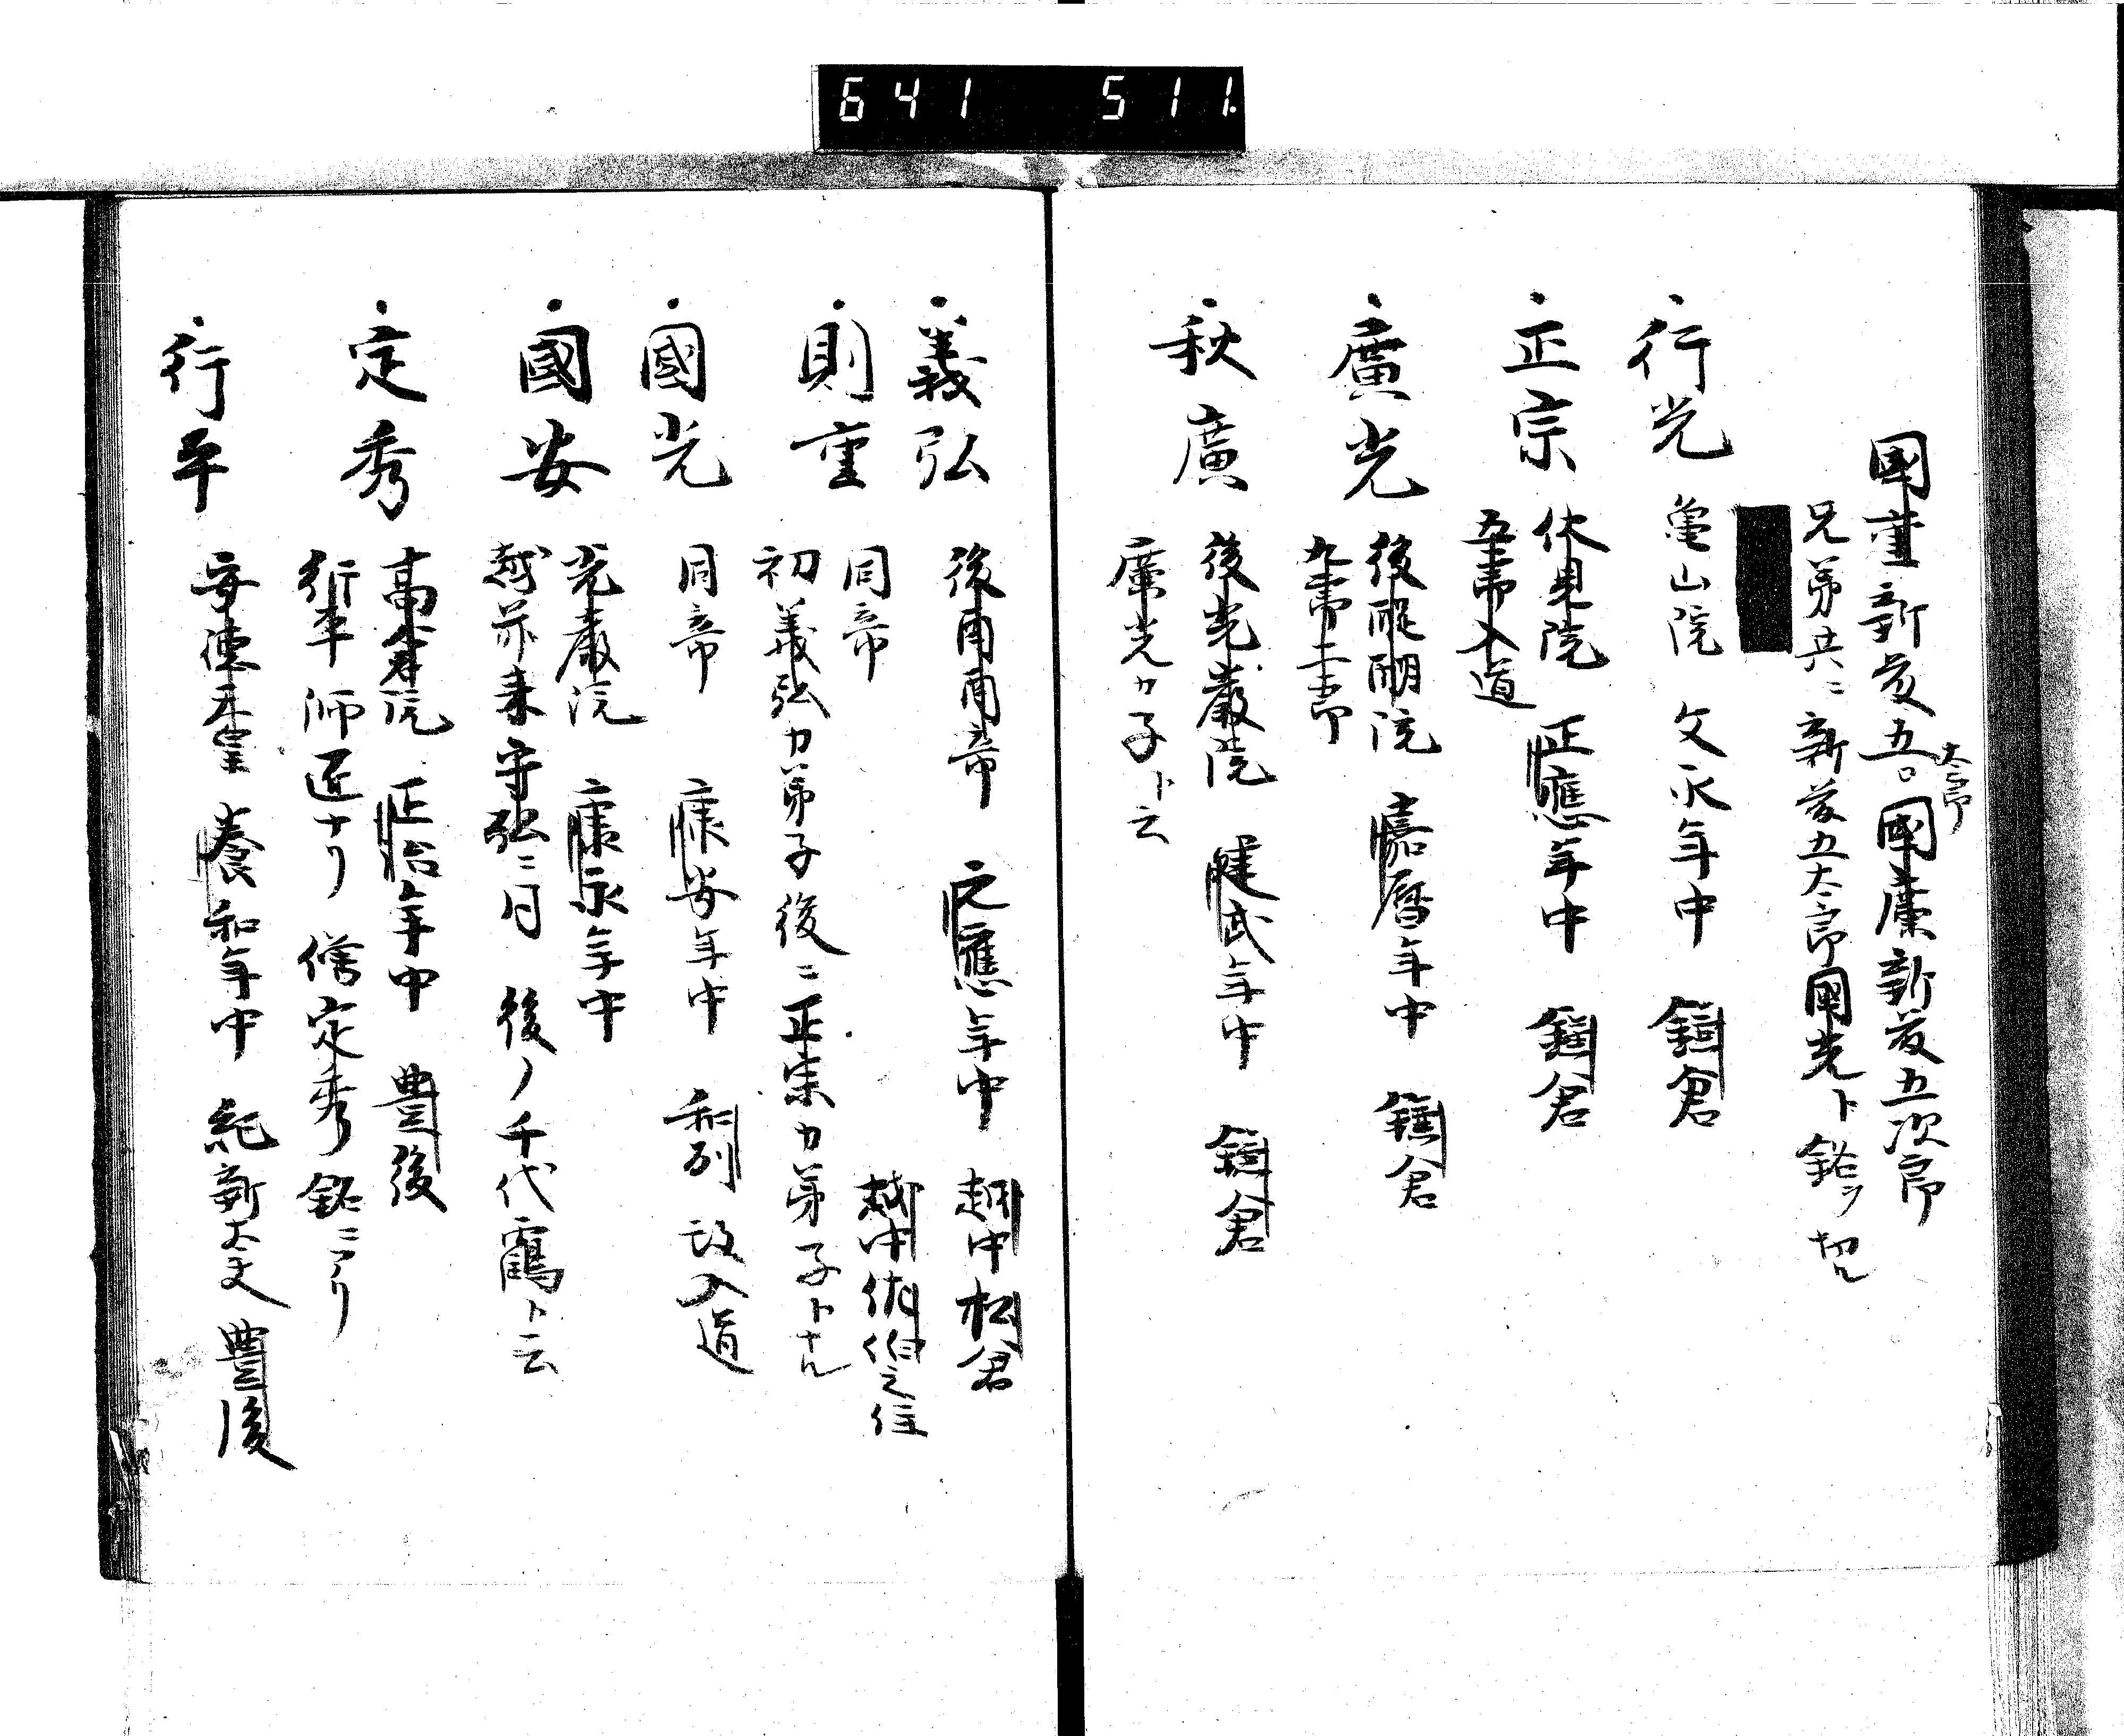 641 511
國重新藤五太郎國廣新藤五次郎
兄弟共ニ新藤五太郎國光ト銘ヲ切ル
行光 亀山院 文永年中 鎌倉
正宗 伏見院 正應年中 鎌倉
五郎入道
廣光 後醍醐院 嘉暦年中 鎌倉
九郎二郎
秋廣 後光嚴院 建武年中 鎌倉
廣光カ子ト云
義弘 後 帝 元應年中 越中松倉
則重 同帝 越中 之住
初義弘カ弟子後ニ正宗カ弟子トナル
國光 同帝 康安年中 和列 入道
國安 光嚴院 康永年中
越前来守弘ニ同 後ノ千代鶴ト云
定秀 高倉院 正治年中 豊後
行平師匠ナリ 僧定秀銘ニアリ
行平 安德天皇 養和年中 紀新太夫 豊後